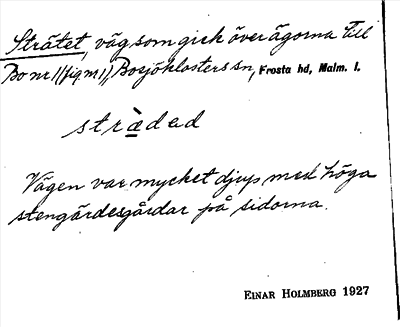 Strätet, väg som gick över ägorna till
Bo nr 1 (fig. nr 1), Bosjöklosters sn, Frosta hd, Malm. l.
strä̀dəd
Vägen var mycket djup med höga
stengärdesgårdar på sidorna.
EINAR HOLMBERG 1927